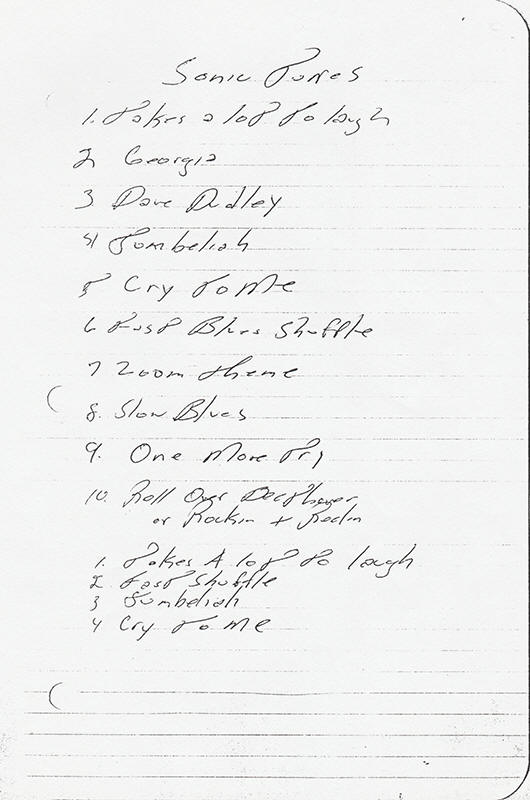 Sonic Tunes
1. Takes a lot to laugh
2 Georgia
3 Dave Dudley
4 Jumbeliah
5 Cry to Me
6 Fast Blues Shuffle
7 Zoom theme
8. Slow Blues
9. One More Try
10. Roll Over Beethoven
or Rockin + Reelin
1. Takes A lot to laugh
2 Fast Shuffle
3 Jumbeliah
4 Cry to Me